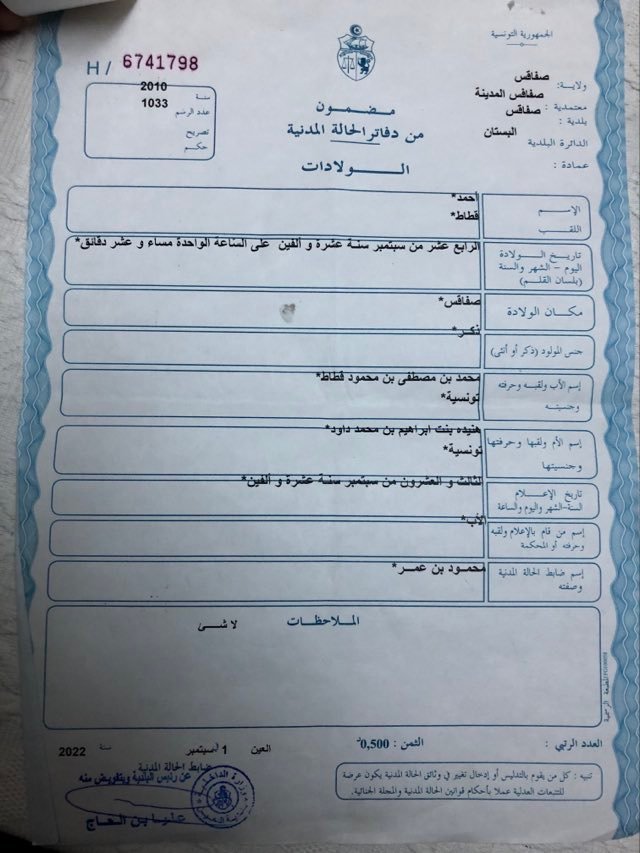 الجمهورية التونسية
ولاية: صفاقس
معتمدية: صفاقس المدينة
بلدية: صفاقس
الدائرة البلدية البستان
عمادة:
H/ 6741798
سنة 2010
عدد الرسم 1033
تصريح
حكم
مضمون
من دفاتر الحالة المدنية
الـولادات
الإسم أحمد*
اللقب قطاط*
تاريخ الولادة
اليوم - الشهر والسنة
(بلسان القلم)
الرابع عشر من سبتمبر سنة عشرة و ألفين على الساعة الواحدة مساء و عشر دقائق*
مكان الولادة صفاقس*
جنس المولود (ذكر أو أنثى) ذكر*
إسم الأب ولقبه وحرفته محمد بن مصطفى بن محمود قطاط*
وجنسيته تونسية*
إسم الأم ولقبها وحرفتها هنيده بنت ابراهيم بن محمد داود*
وجنسيتها تونسية*
تاريخ الإعلام
السنة-الشهر واليوم والساعة
الثالث و العشرون من سبتمبر سنة عشرة و ألفين*
إسم من قام بالإعلام ولقبه
وحرفته أو المحكمة
الأب*
إسم ضابط الحالة المدنية
وصفته
محمود بن عمر*
الملاحظات
لا شئ
المطبعة الرسمية
العدد الرتبي :
الثمن : 0,500د
العين 1 سبتمبر سنة 2022
تنبيه : كل من يقوم بالتدليس أو إدخال تغيير في وثائق الحالة المدنية يكون عرضة
للتتبعات العدلية عملا بأحكام قوانين الحالة المدنية والمجلة الجنائية.
ضابط الحالة المدنية
عن رئيس البلدية وبتفويض منه
علياء بن الحاج
وزارة الداخلية